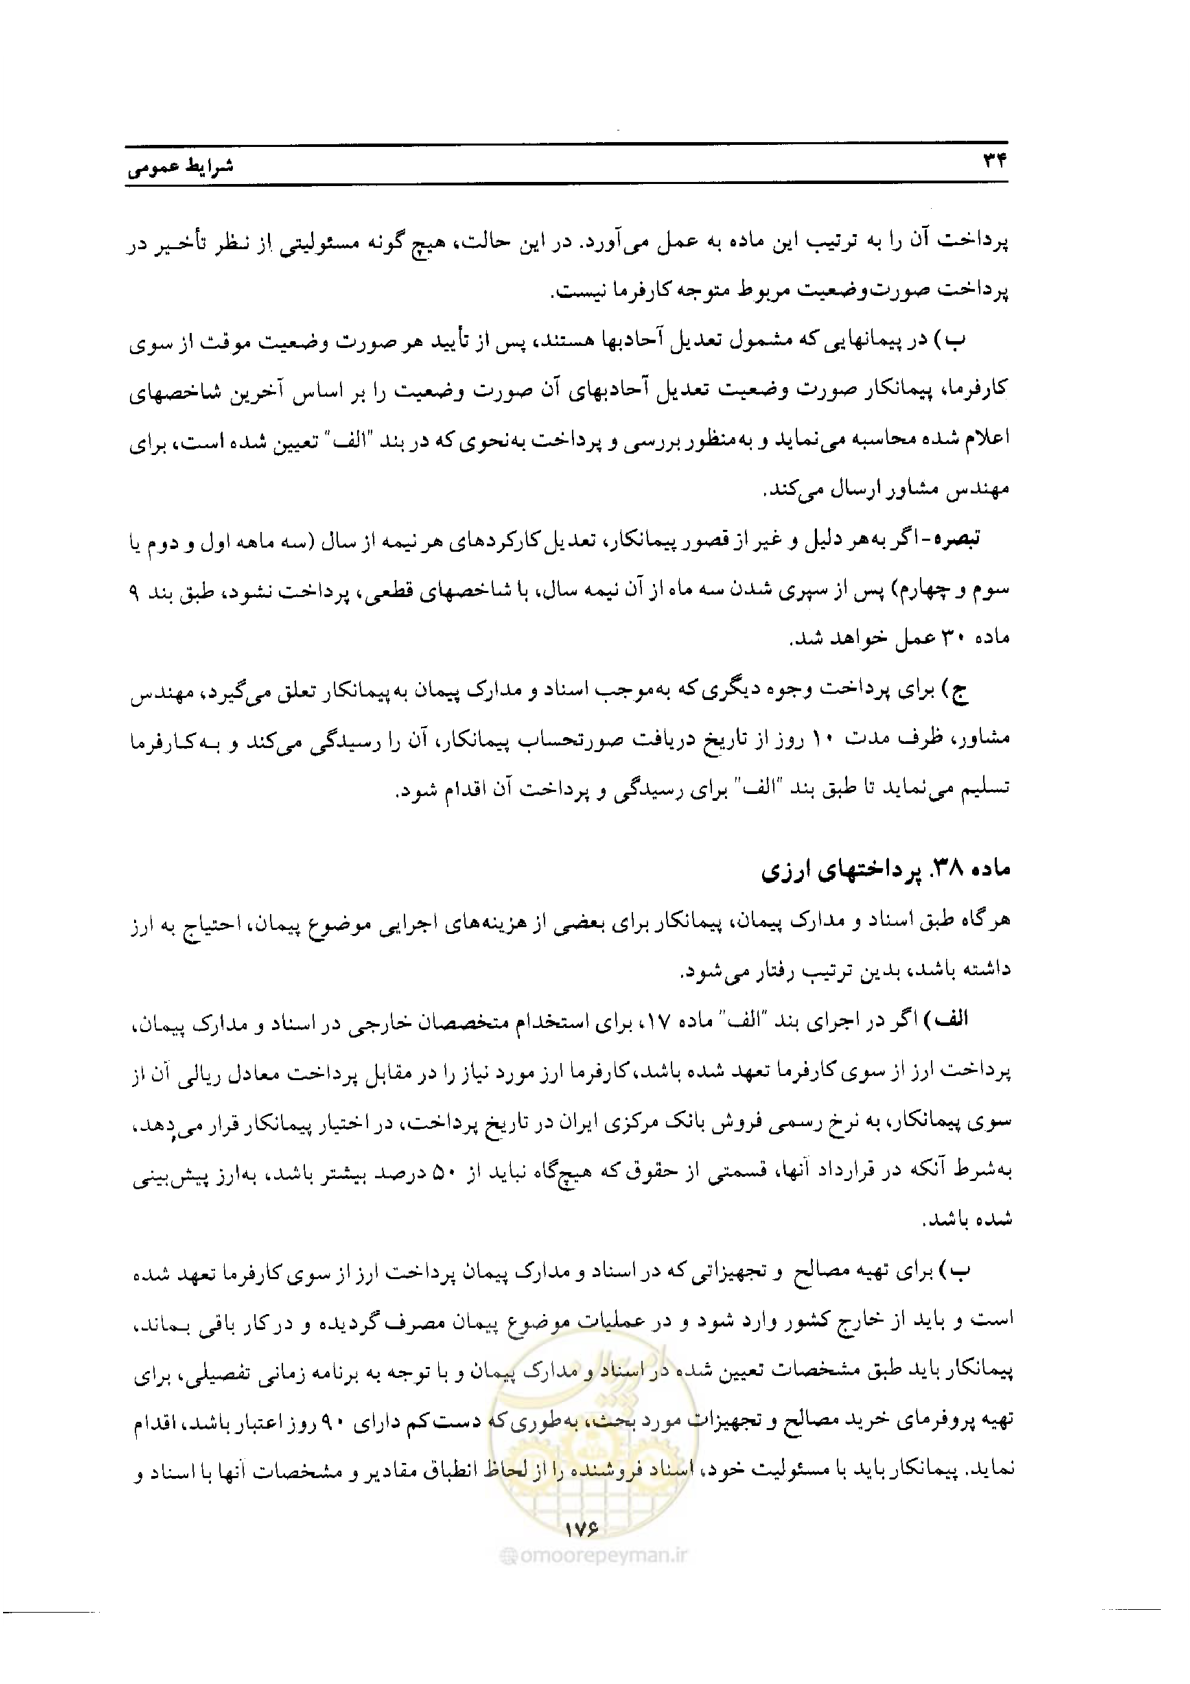 ۳۴
شرایط عمومی
پرداخت آن را به ترتیب این ماده به عمل می‌آورد. در این حالت، هیچ گونه مسئولیتی از نظر تأخیر در
پرداخت صورت‌وضعیت مربوط متوجه کارفرما نیست.
ب) در پیمانهایی که مشمول تعدیل آحادبها هستند، پس از تأیید هر صورت وضعیت موقت از سوی
کارفرما، پیمانکار صورت وضعیت تعدیل آحادبهای آن صورت وضعیت را بر اساس آخرین شاخصهای
اعلام شده محاسبه می‌نماید و به‌منظور بررسی و پرداخت به‌نحوی که در بند "الف" تعیین شده است، برای
مهندس مشاور ارسال می‌کند.
تبصره - اگر به‌هر دلیل و غیر از قصور پیمانکار، تعدیل کارکردهای هر نیمه از سال (سه ماهه اول و دوم یا
سوم و چهارم) پس از سپری شدن سه ماه از آن نیمه سال، با شاخصهای قطعی، پرداخت نشود، طبق بند ۹
ماده ۳۰ عمل خواهد شد.
ج) برای پرداخت وجوه دیگری که به‌موجب اسناد و مدارک پیمان به‌پیمانکار تعلق می‌گیرد، مهندس
مشاور، ظرف مدت ۱۰ روز از تاریخ دریافت صورتحساب پیمانکار، آن را رسیدگی می‌کند و به‌کارفرما
تسلیم می‌نماید تا طبق بند "الف" برای رسیدگی و پرداخت آن اقدام شود.
ماده ۳۸. پرداختهای ارزی
هرگاه طبق اسناد و مدارک پیمان، پیمانکار برای بعضی از هزینه‌های اجرایی موضوع پیمان، احتیاج به ارز
داشته باشد، بدین ترتیب رفتار می‌شود.
الف) اگر در اجرای بند "الف" ماده ۱۷، برای استخدام متخصصان خارجی در اسناد و مدارک پیمان،
پرداخت ارز از سوی کارفرما تعهد شده باشد، کارفرما ارز مورد نیاز را در مقابل پرداخت معادل ریالی آن از
سوی پیمانکار، به نرخ رسمی فروش بانک مرکزی ایران در تاریخ پرداخت، در اختیار پیمانکار قرار می‌دهد،
به‌شرط آنکه در قرارداد آنها، قسمتی از حقوق که هیچ‌گاه نباید از ۵۰ درصد بیشتر باشد، به‌ارز پیش‌بینی
شده باشد.
ب) برای تهیه مصالح و تجهیزاتی که در اسناد و مدارک پیمان پرداخت ارز از سوی کارفرما تعهد شده
است و باید از خارج کشور وارد شود و در عملیات موضوع پیمان مصرف گردیده و در کار باقی بماند،
پیمانکار باید طبق مشخصات تعیین شده در اسناد و مدارک پیمان و با توجه به برنامه زمانی تفصیلی، برای
تهیه پروفرمای خرید مصالح و تجهیزات مورد بحث، به‌طوری‌که دست‌کم دارای ۹۰ روز اعتبار باشد، اقدام
نماید. پیمانکار باید با مسئولیت خود، اسناد فروشنده را از لحاظ انطباق مقادیر و مشخصات آنها با اسناد و
۱۷۶
@omoorepeyman.ir